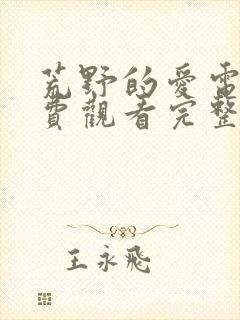 荒野的愛電
費觀看完整
王永飛